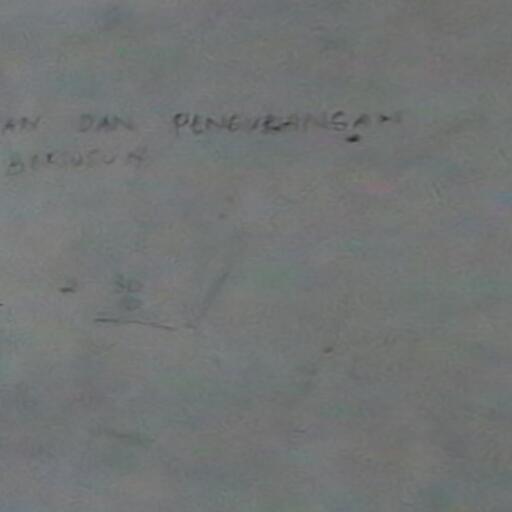 AN DAN PENGURANGAN
BERSUSUN
30